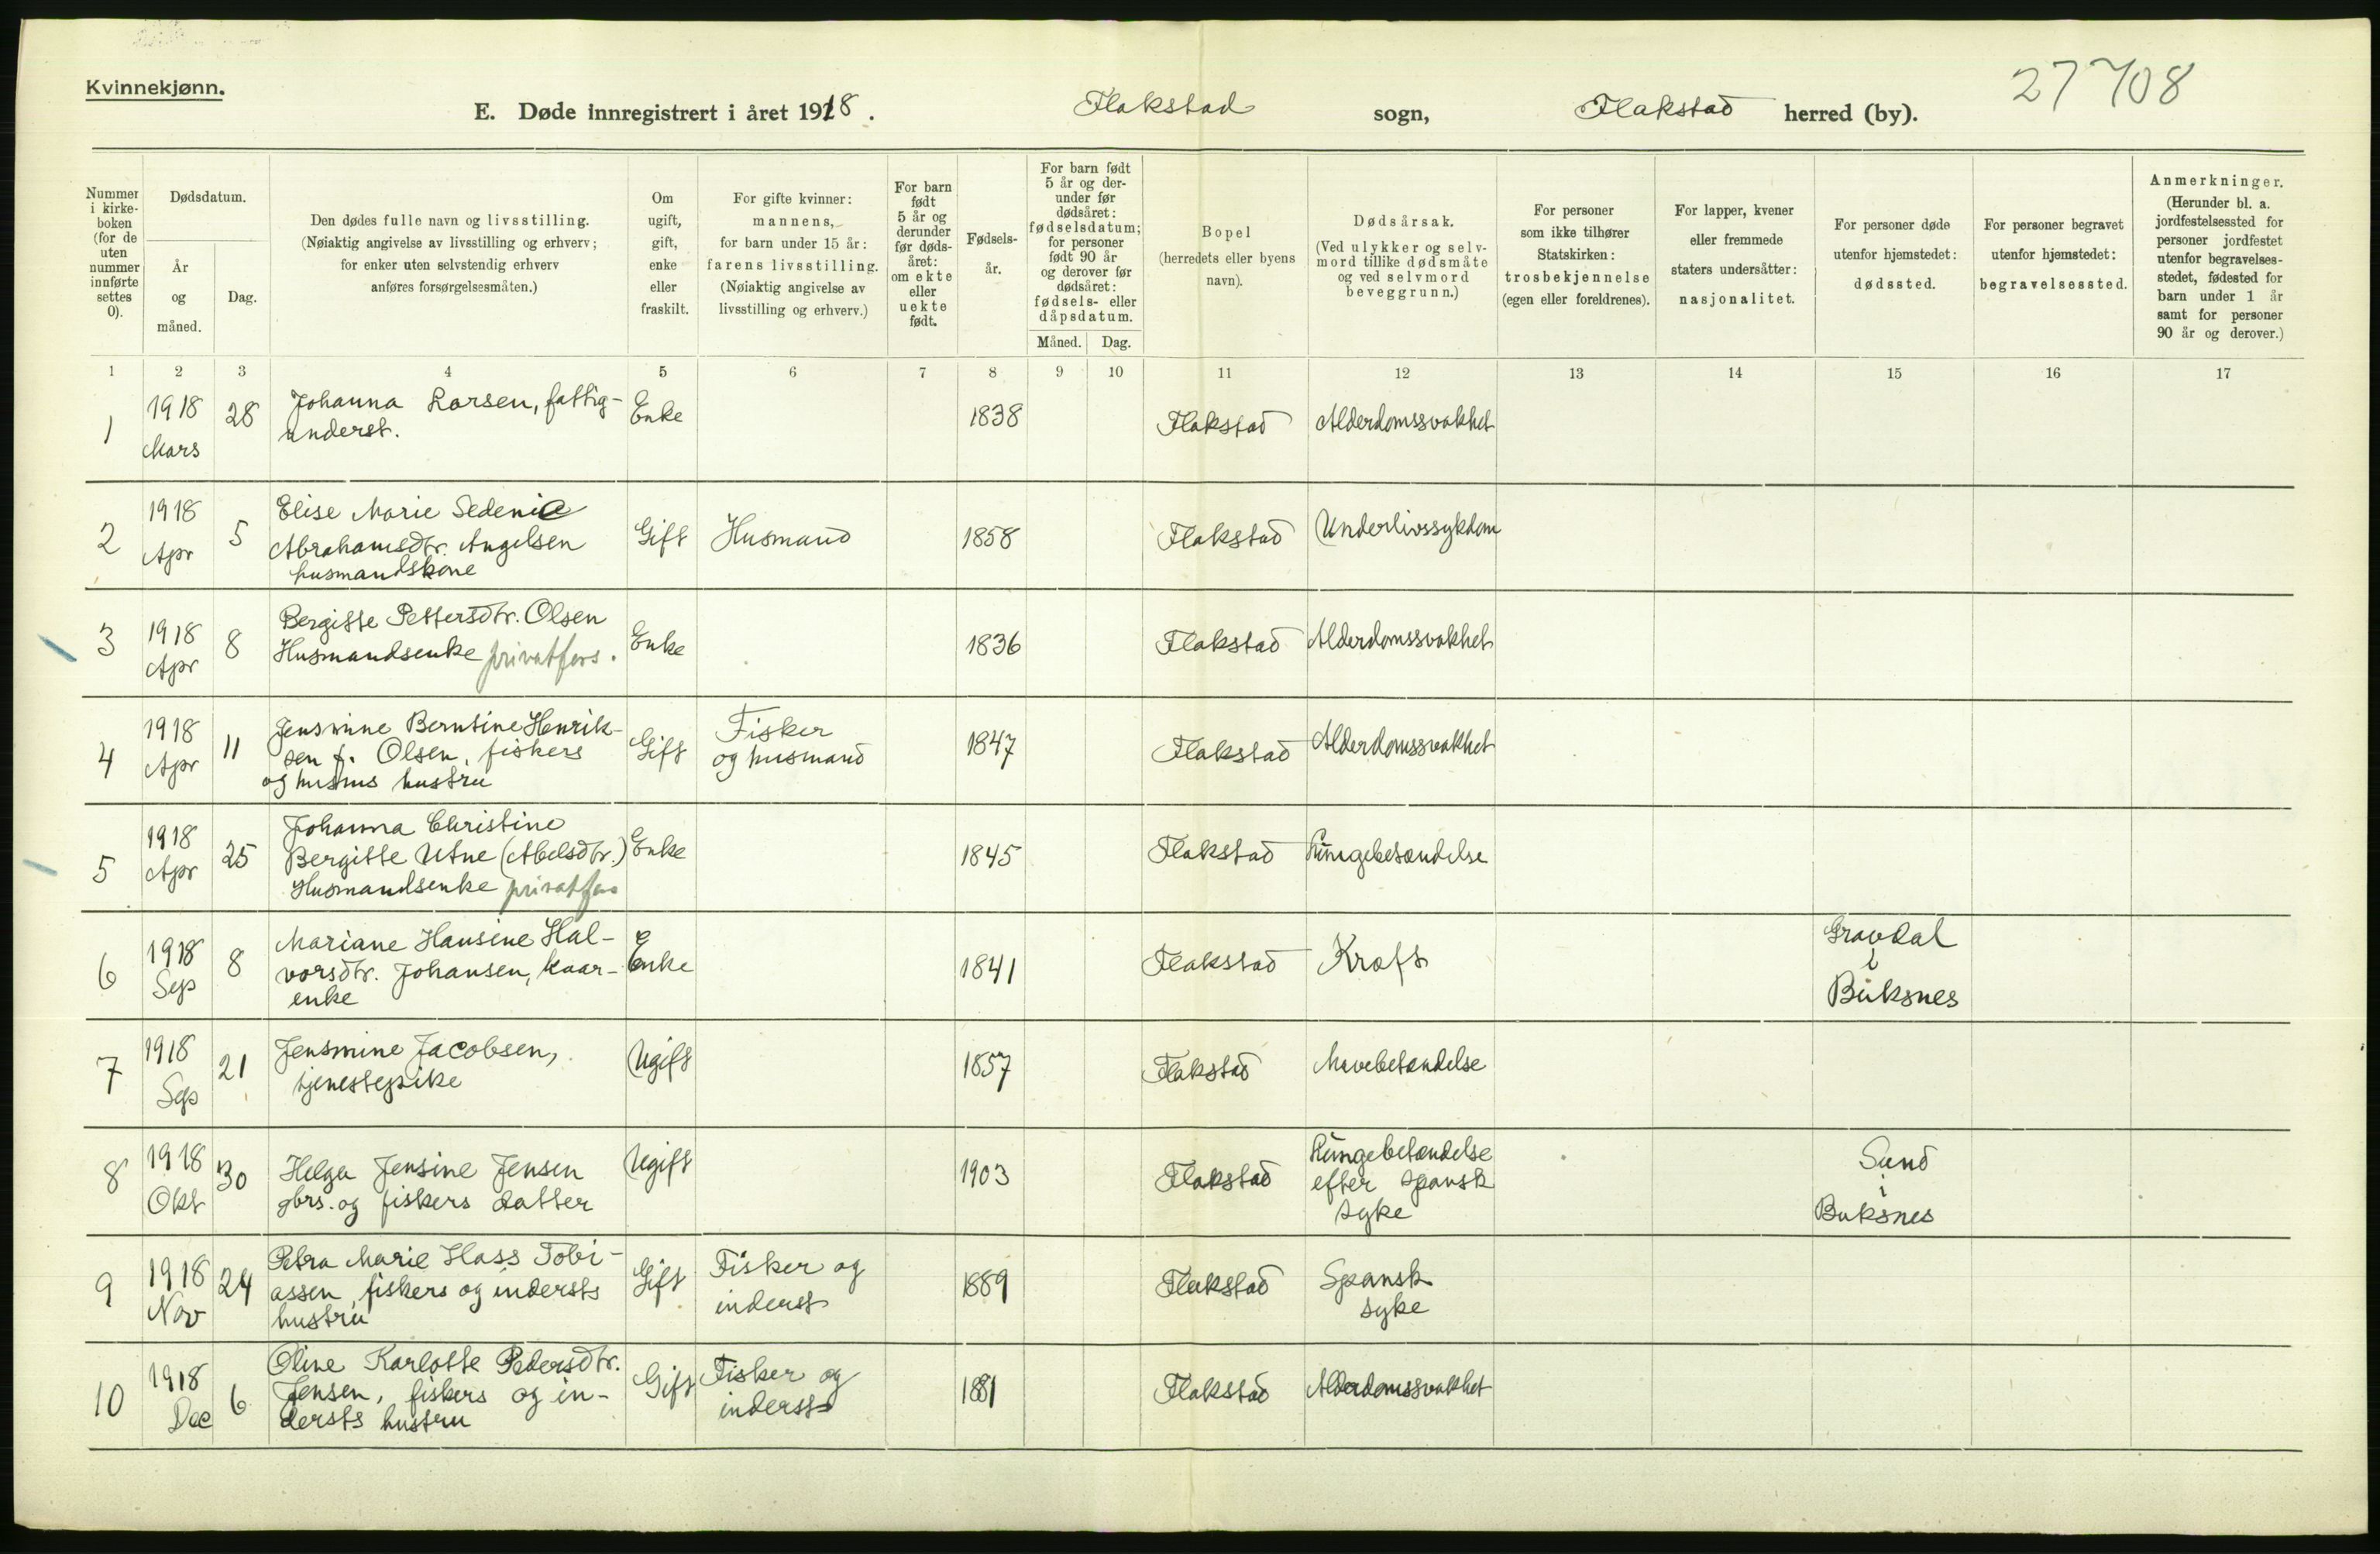 Kvinnekjønn.
E. Døde innregistrert i året 1918. Flakstad sogn, Flakstad herred (by). 27708
Nummer i kirke-boken (for de uten nummer innførte settes 0).
Dødsdatum.
År og måned.
Dag.
Den dødes fulle navn og livsstilling.
(Nøiaktig angivelse av livsstilling og erhverv;
for enker uten selvstendig erhverv
anføres forsørgelsesmåten.)
Om ugift, gift, enke eller fraskilt.
For gifte kvinner:
mannens,
for barn under 15 år:
farens livsstilling.
(Nøiaktig angivelse av
livsstilling og erhverv.)
For barn født 5 år og derunder før døds-året: om ekte eller uekte født.
Fødsels-år.
For barn født 5 år og der-under før dødsåret: fødselsdatum; for personer født 90 år og derover før dødsåret: fødsels- eller dåpsdatum.
Måned. Dag.
Bopel
(herredets eller byens
navn).
Dødsårsak.
(Ved ulykker og selv-
mord tillike dødsmåte
og ved selvmord
beveggrunn.)
For personer
som ikke tilhører
Statskirken:
trosbekjennelse
(egen eller foreldrenes).
For lapper, kvener
eller fremmede
staters undersåtter:
nasjonalitet.
For personer døde
utenfor hjemstedet:
dødssted.
For personer begravet
utenfor hjemstedet:
begravelsessted.
Anmerkninger.
(Herunder bl. a.
jordfestelsessted for
personer jordfestet
utenfor begravelses-
stedet, fødested for
barn under 1 år
samt for personer
90 år og derover.)
1 2 3 4 5 6 7 8 9 10 11 12 13 14 15 16 17
1 1918 Mars 28 Johanna Larsen, fattig-
underst. Enke 1838 Flakstad Alderdomssvakhet
2 1918 Apr 5 Elise Marie Sedenie
Abrahamsdtr. Angelsen
husmandskone Gift Husmand 1858 Flakstad Underlivssykdom
3 1918 Apr 8 Bergitte Pettersdtr. Olsen
Husmandsenke privatfors. Enke 1836 Flakstad Alderdomssvakhet
4 1918 Apr 11 Jensmine Berntine Henrik-
sen f. Olsen, fiskers
og husms hustru Gift Fisker
og husmand 1847 Flakstad Alderdomssvakhet
5 1918 Apr 25 Johanna Christine
Bergitte Utne (Abelsdtr.)
Husmandsenke privatfors Enke 1845 Flakstad Lungebetændelse
6 1918 Sep 8 Mariane Hansine Hal-
vorsdtr. Johansen, kaar-
enke Enke 1841 Flakstad Kræft Gravdal
i
Buksnes
7 1918 Sep 21 Jensmine Jacobsen,
tjenestepike Ugift 1857 Flakstad Mavebetændelse
8 1918 Okt 30 Helga Jensine Jensen
gbrs. og fiskers datter Ugift 1903 Flakstad Lungebetændelse
efter spansk
syke Sund
i
Buksnes
9 1918 Nov 24 Petra Marie Hass Tobi-
assen, fiskers og indersts
hustru Gift Fisker og
inderst 1889 Flakstad Spansk
syke
10 1918 Dec 6 Oline Karlotte Pedersdtr.
Jensen, fiskers og in-
dersts hustru Gift Fisker og
inderst 1881 Flakstad Alderdomssvakhet